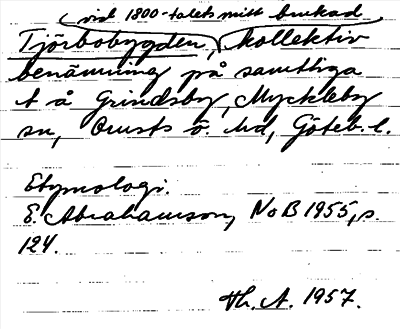 (vid 1800-talets mitt brukad
Tjörbobygden, kollektiv
benämning på samtliga
t å Grindsby, Myckleby
sn, Orusts ö. hd, Göteb. l.
Etymologi.
E. Abrahamson, NoB 1955, s.
124.
Th. A. 1957.